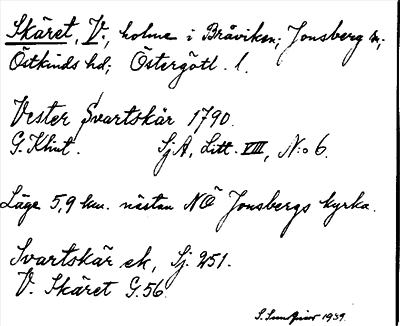 Skäret, V., holme i Bråviken; Jonsberg sn;
Östkinds hd; Östergötl. l.
Vester Svartskär 1790.
G. Klint. SjA, Litt. VIII, N:o 6.
Läge 5,9 km. nästan NÖ Jonsbergs kyrka.
Svartskär ek, Sj. 251.
V. Skäret G. 56.
S. 1939.